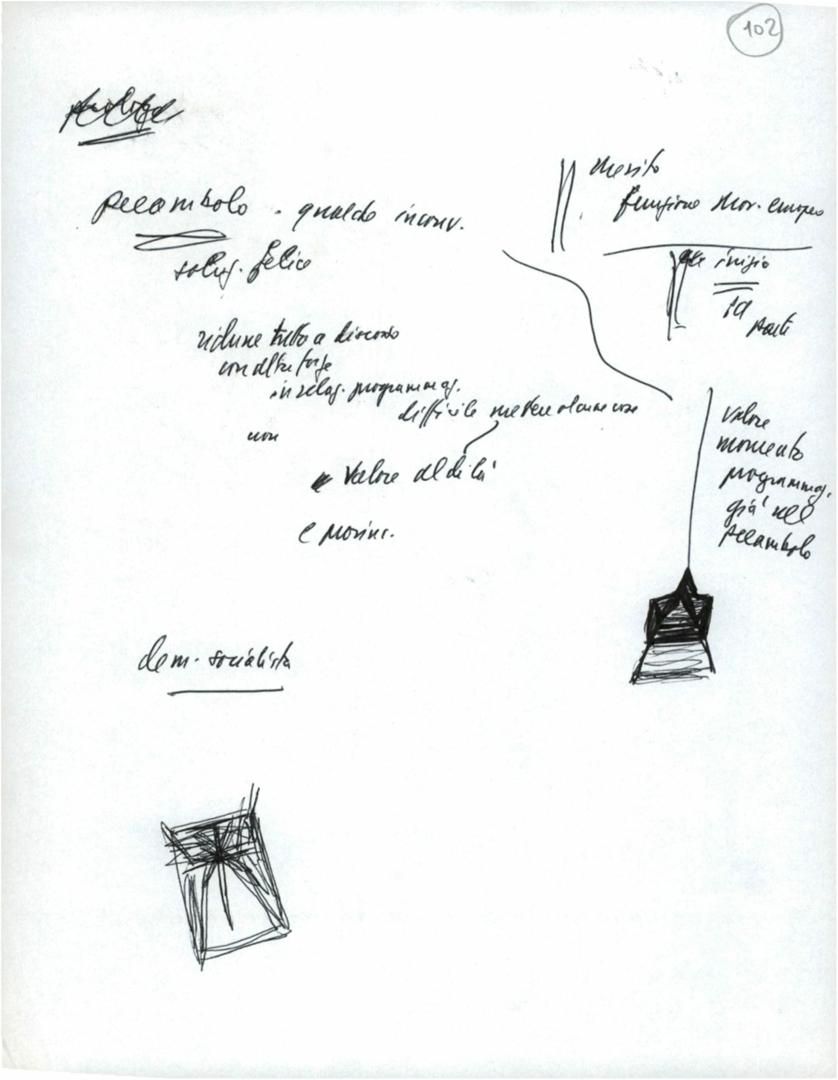 102
preambolo - qualche inconv.
soluz. felice
merito
funzione mov. europeo
inizio
1a
parte
ridurre tutto a discorso
con altre forze
in relaz. programmaz.
difficile mettere alcune cose
non
valore al di là
e
valore
momento
programmaz.
già nel
preambolo
dem. socialista